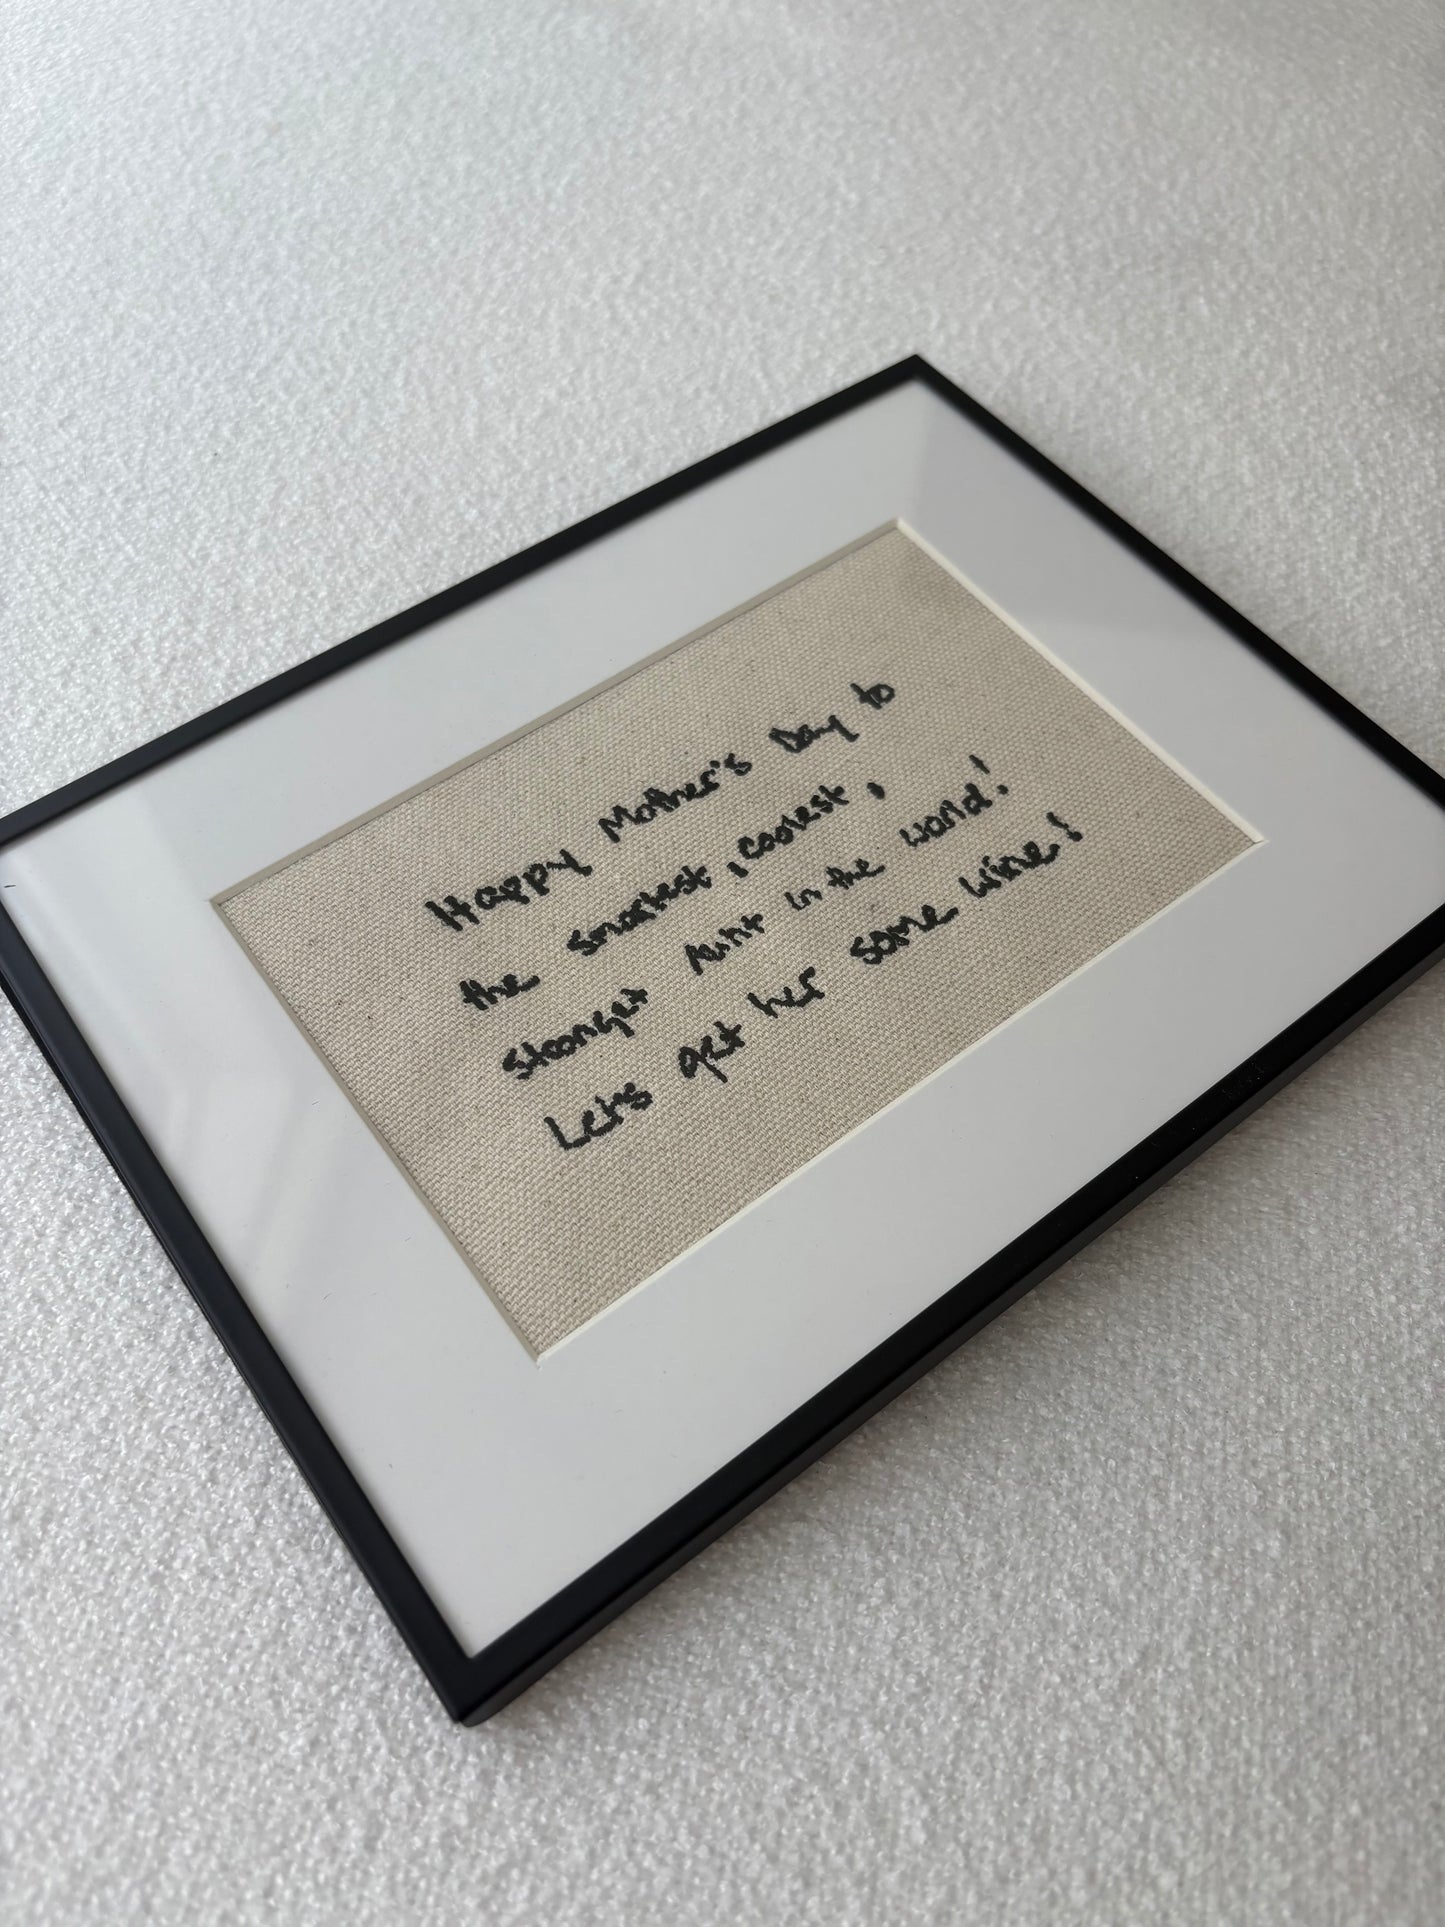 Happy Mother's Day to
the smartest, coolest,
strongest Aunt in the world!
Let's get her some wine!